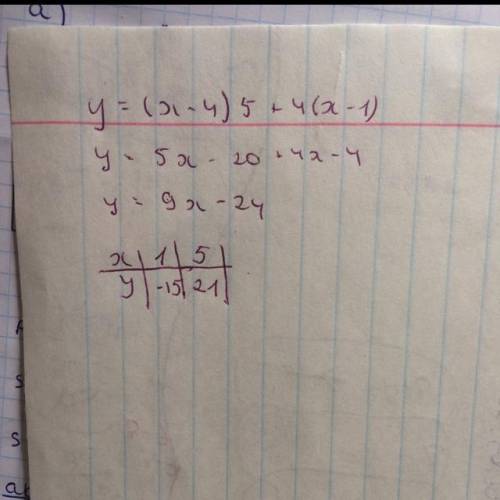 a)
y = (x - 4) 5 + 4(x - 1)
y = 5x - 20 + 4x - 4
y = 9x - 24
x | 1 | 5
y | -15 | 21
s
s